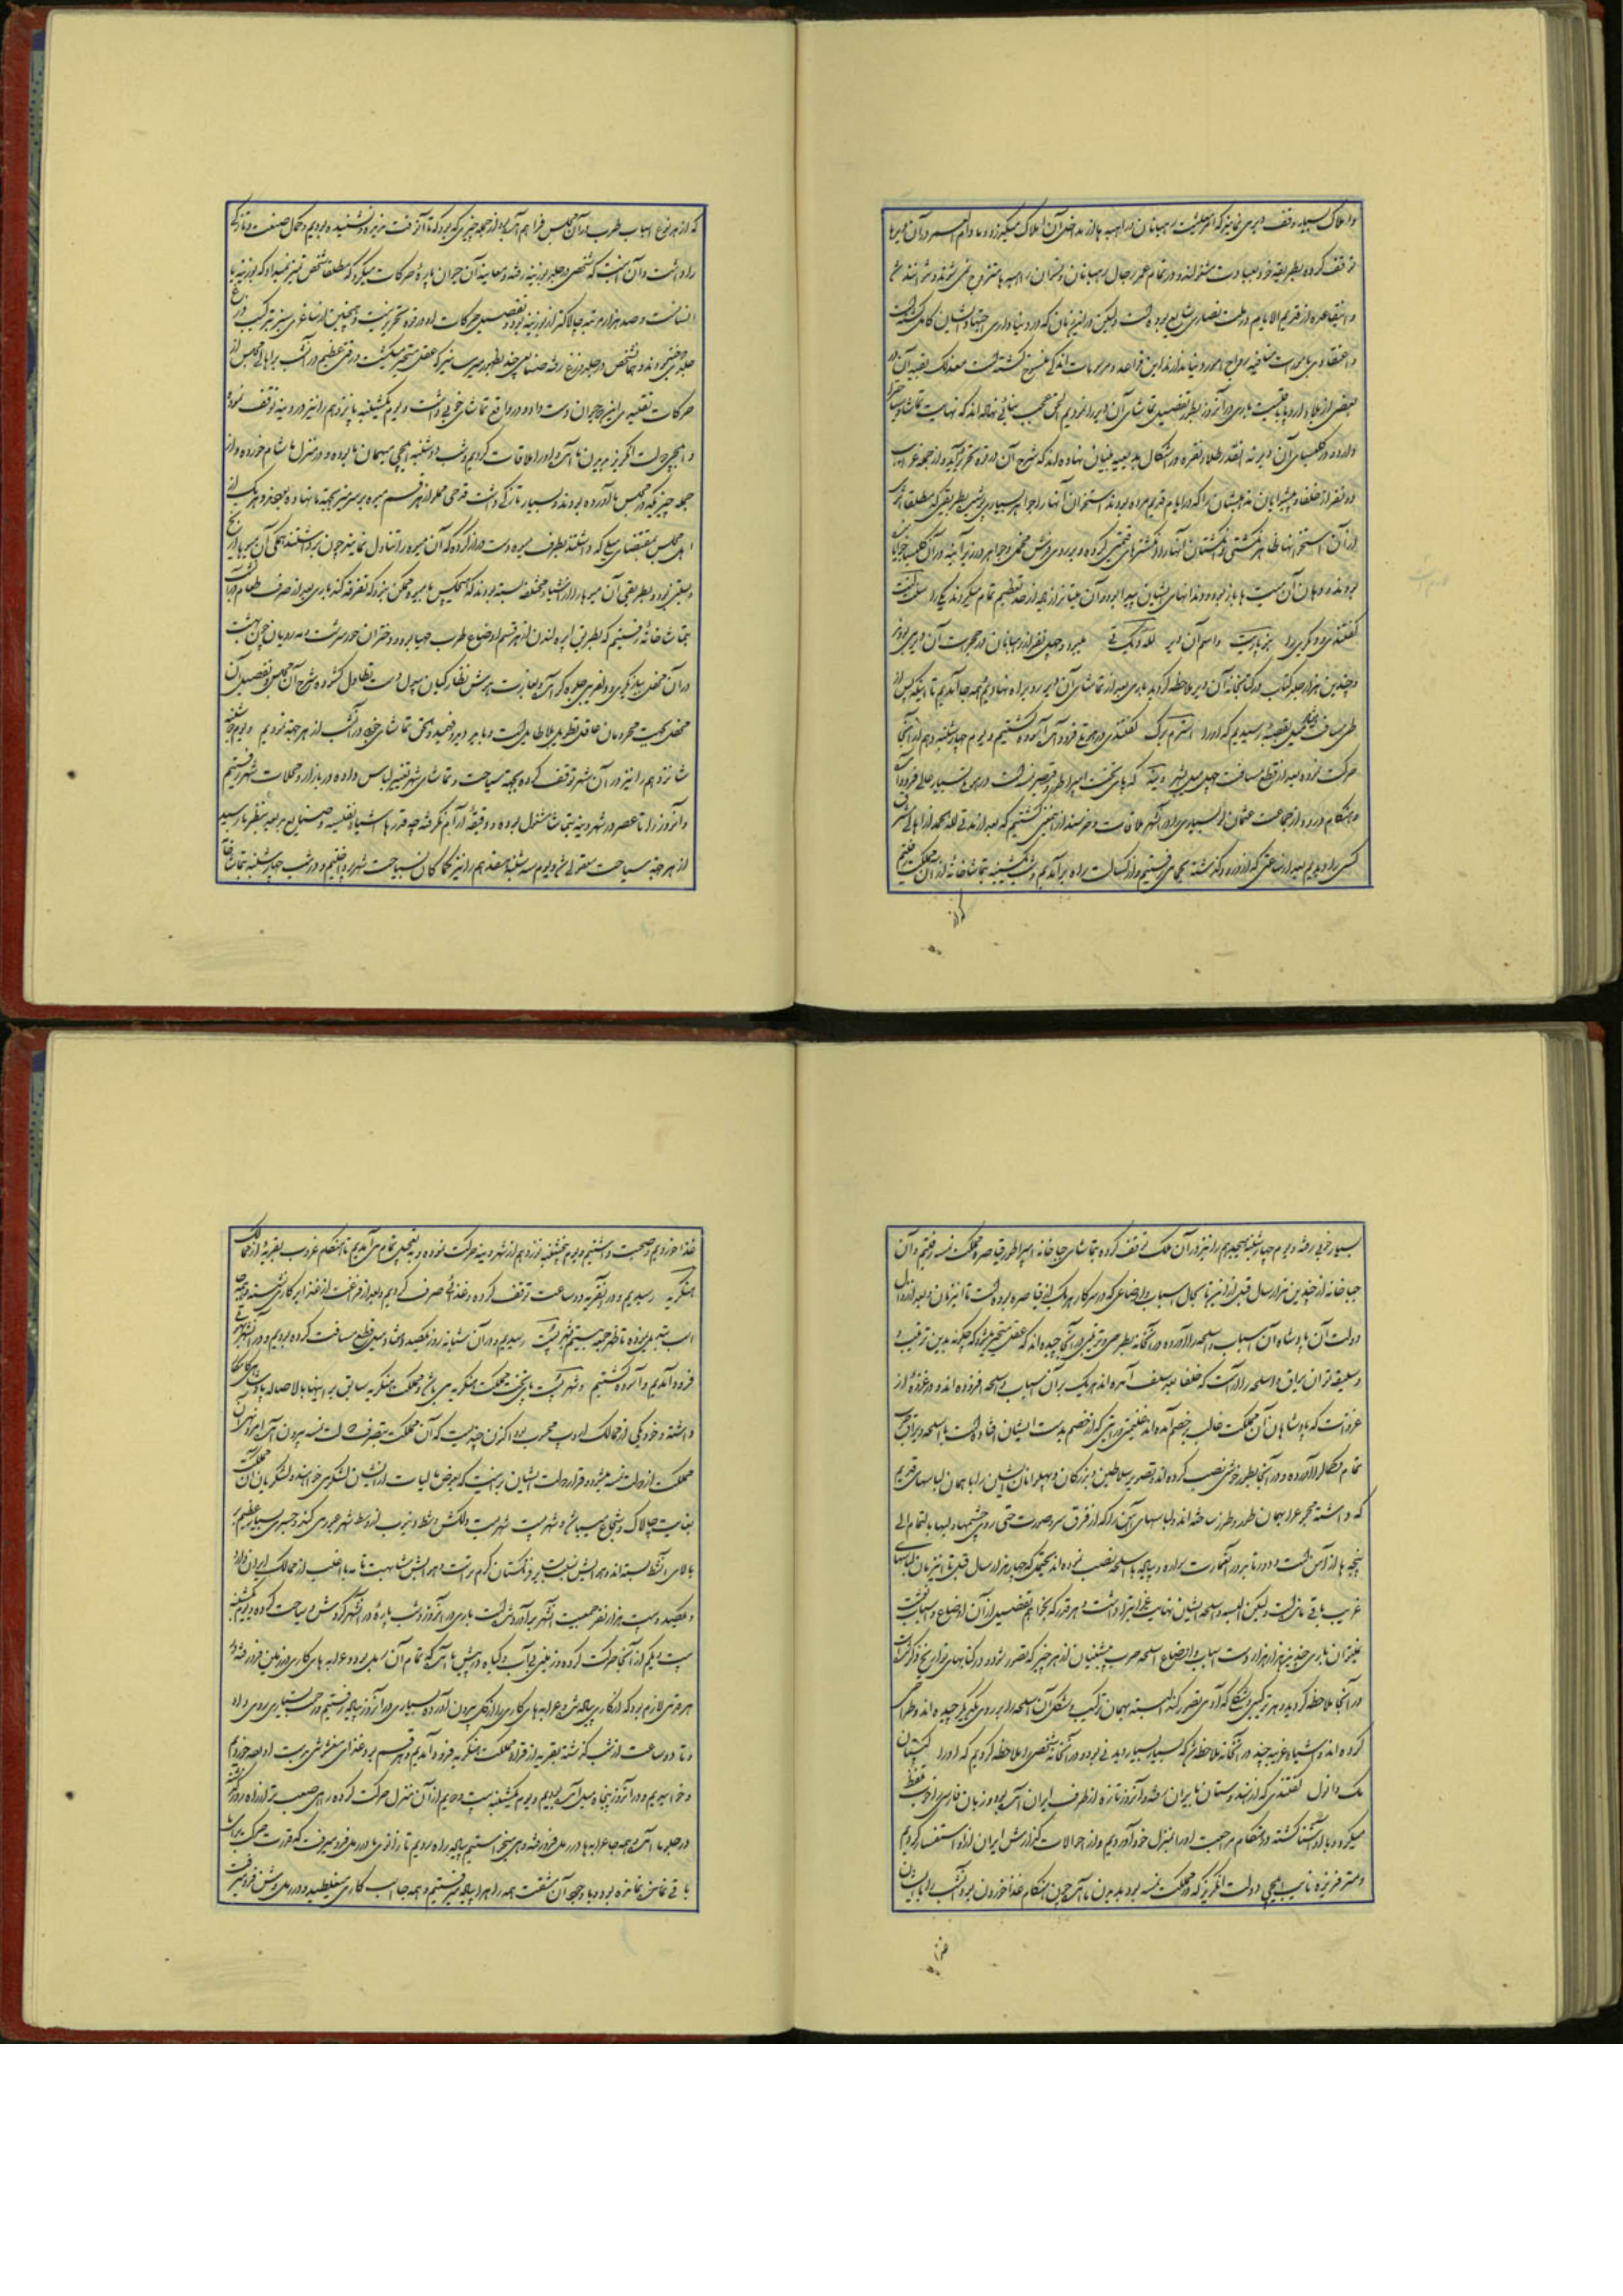 و املاک بسیار وقف دیر می نمایند که امر معیشت رهبانان و راهبه ها از مداخل آن املاک میگذرد و مادام العمر در آن دیرها
توقف کرده بطریقه خود بعبادت مشغولند و در تمام عمر رجال رهبانان و نسوان راهبه ها متزوج نمی شوند
و این قاعده از قدیم الایام در ملت نصاری شایع بوده است ولیکن در این زمان که در دنیاداری اجتهاد ایشان کامل گشته است
و اعتقاد بی بامورات مذهبیه و رواج امور دنیا ندارند این قواعد و مرسومات اندکی منسوخ گشته است معذلک بقیه آن در
بعضی از بلاد اروپا باقیست باری در آنروز بطور تفصیل تماشای آن دیر را نمودیم الحق عجب بنائی نهاده اند که نهایت تماشا
دارد و در کلیسیای آن دیر نه آنقدر طلا و نقره و اشکال بدیعیه بنیان نهاده اند که شرح آن در قوه تحریر آید و از جمله غرایب
دو نفر از خلفا و پیشوایان مذهبشان را که در ایام قدیم مرده بودند استخوان آنها را جواهر بسیاری پوشیده بطریقی که مطلقا اثر
از آن استخوانها ظاهر نگشتی و انگشتان آنها را در انگشترهای قیمتی کرده و بر روی فرش مخمل و جواهر در زیر آینه در آن کلیسیا خوابانیده
بودند و دهان آن میت ها باز بود و دندانهای ایشان پیدا بود و از آن میتها زیاده از حد تعظیم تمام میکردند یکی را سنت
گفتندی و دیگری را بنه پارت و اسم آن دیر مللک تی میبرد و چهل نفر از رهبانان در حجرات آن دیر می بودند
و چندین هزار جلد کتاب در کتابخانه آن دیر ملاحظه گردید باری بعد از تماشای آن دیر رو براه نهادیم همه جا آمدیم تا اینکه پس از
طی مسافت شش میل بقصبه رسیدیم که او را اسنرم برگ گفتندی در همان جا فرود آمده آسوده گشتیم و یوم چهارشنبه دهم از آنجا
حرکت نموده بعد از قطع مسافت چهل میل بشهر وینه که پای تخت امپراطور و قیصر نمسه است در همانخانه بسیار عالی فرود آمدیم
هنگام ورود از جماعت عثمان لو بسیاری را در آن شهر ملاقات و خرسند از این گشتیم که بعد از مدتی لله الحمد از اهالی مشرق
کسی را دیدیم بعد از ساعتی که از ورود گذشته بحمام رفتیم و از کسالت راه بر آمدیم و شب پنجشنبه بتماشاخانه از آن ملک رفتیم
که از هر نوع اسباب طرب در آن مجلس فراهم آمده بود از جمله چیزی که بود که تا آن وقت ندیده و نشنیده بودیم و کمال صنعت و تازگی
را داشت و آن این است که شخصی در جلد بوزینه رفته و بعاینه آن حیوان پاره حرکات میکرد که مطلقا شخص تمیز نمیداد که بوزینه یا
انسانست و صد هزار مرتبه چالاکتر از بوزینه بود و تفصیل حرکات او در قوه تحریر نیست و همچنین از ساغری سبز ترکیب وزغ
جلدی دوخته بودند و همان شخص در جلد وزغ رفته صنایعی چند بظهور میرسانید که عقل متحیر میگشت و رقص عظیم در آنشب براه اهالی مجلس از
حرکات تقلید بی این دو حیوان دست داد و در واقع تماشای خوبی داشت و یوم یکشنبه پانزدهم را نیز در وینه توقف نموده
و ایلچی دولت انگریز بدیدن ما آمده او را ملاقات کردیم و شب دوشنبه ایلچی میهمان ما بوده و در منزل ما شام خورده و از
جمله چیزیکه در مجلس ما آورده بودند و بسیار تازگی داشت قرحی مملو از هر قسم میوه بر سر میز بجهة ما نهاده بودند و هر یک از
اهل مجلس بمقتضای میلی که داشتند بطرف میوه دست دراز کرده که آن میوه را تناول نمایند چون برداشتند همگی آن میوه ها از یخ
و بستنی بود و بطریقی آن میوه ها را از اشیاء مختلفه بسته بودند که هیچکس با میوه ممکن نبود که تفرقه کند باری بعد از صرف طعام در آنشب
بتماشاخانه رفتیم که بطریق اپره لندن از هر قسم اوضاع طرب مهیا بود و دختران حور سرشت و مه رویان چون بهشت
در آن محفل بیکدیگر بدلفریبی جلوه گر آمده
محفل بجهت محرمان عاقل تطویل بلا طایل است در ما بین دیر و خمید و الحق تماشای خوبی در آنشب از هر جهة نمودیم و یوم دوشنبه
شانزدهم را نیز در آن شهر توقف کرده بجهة سیاحت و تماشای شهر تغییر لباس داده در بازار و محلات شهر رفتیم
و آنروز را تا عصر در شهر وینه بتماشا مشغول بوده و دقیقه آرام نگرفته چه قدرها اشیاء نفیسه و صنایع بدیعه بنظر ما رسید
از هر جهة سیاحت معقولی شد و یوم سه شنبه هفدهم را نیز کماکان بسیاحت شهر پرداختیم و در شب چهارشنبه بتماشاخانه
بسیار خوبی رفته و یوم چهارشنبه هیجدهم را نیز در آن ملک توقف کرده بتماشای جباخانه امپراطور و قیاصره مملکت نمسه رفتیم و آن
جباخانه از چندین هزار سال قبل از این تا بحال اسباب و اوضاعی که در سرکار هر یک از قیاصره بوده است تا این زمان و بعد از زوال
دولت آن پادشاه آن اسباب و اسلحه را آورده در آنخانه بطرحی و ترتیبی در آنجا چیده اند که عقل متحیر میشود که چگونه بدین ترتیب و
و سلیقه توان یراق و اسلحه را آراست که خلفا بعد سلف آمده اند هر یک بر آن اسباب و اسلحه افزوده اند و در غزوه از
غزوات که پادشاهان آن مملکت غالب بر خصم آمده اند غنیمتی و رایتی که از خصم بدست ایشان افتاده است با اسلحه و یراق حرب
تمام آنکه را آورده و در آنجا بطور خوشی نصب کرده اند و تصویر سلاطین و بزرگان و پهلوانان ایشان را با همان لباسهای قدیم
که داشته مجره عدا بهمان طور و طرز ساخته اند و لباسهای آهن را که از فرق سر و صورت حتی روی چشمها و لبها بالتمام الی
پنجه پا از آهن است و دور تا دور آن عمارت براده و سپاهی با اسلحه نصب نموده اند بحیثیتی که چهار هزار سال قبل تا این زمان لباسهای
غریب باقی مانده است ولیکن البسه و اسلحه ایشان نهایت غرابت را داشت و هر قدر که بخواهم تفصیلی از آن اوضاع و اسباب بنویسم
نمیتوان باری چندین هزار هزار دست اسباب و اوضاع اسلحه حرب پیشینیان از هر چیز که تصور شود و در کتابهای تواریخ ذکر شده است
در آنجا ملاحظه گردید و هر ترکیبی و شکلی که آدمی تصور کند البته بهمان ترکیب و شکل آن اسلحه را بر روی یکدیگر چیده اند و طراحی
کرده اند و اشیاء غریبه چند در آنخانه ملاحظه شد که بسیار بسیار دیدنی بود و در آنخانه شخصی را ملاحظه کردیم که او را کپتان
مک دانول گفتندی که از هندوستان بایران رفته و آنروز تازه از طرف ایران آمده بود و زبان فارسی را خوب تلفظ
میکرد و با او آشنا گشته در هنگام مراجعت او را بمنزل خود آوردیم و از حالات گزارش ایران از او استفسار کردیم
و مستر فریزه نایب ایلچی دولت انگریز که در مملکت نمسه بود بدیدن ما آمده چون هنگام غذا خوردن بود آنشب را با ایشان
غذا خوردیم و صحبت داشتیم و یوم پنجشنبه نوزدهم از شهر وینه حرکت نموده و بتعجیل تمام می آمدیم تا هنگام غروب بقریه از ممالک
هنگریه رسیدیم و در آن قریه دو ساعت توقف کرده و غذائی صرف کردیم و بعد از فراغت از غذا بر کاری نشسته و همه جا
اسب تبدیل نموده تا ظهر جمعه بیستم بشهر پشت رسیدیم و در آن شبانه روز یکصد و هفتاد میل قطع مسافت کرده بودیم و در آن شهر
فرود آمدیم و آسوده گشتیم و شهر پشت پای تخت مملکت هنگریه می باشد و مملکت هنگریه سابق بر اینها بالاصاله پادشاهی
داشته و خود یکی از ممالک یورپ محسوب بود اکنون چندیست که آن مملکت بتصرف دولت نمسه بیرون آمده امورات آن
مملکت از دولت نمسه میشود و قرار دولت ایشان بر اینست که بعوض مالیات از ایشان لشکر می خواهند و لشکریان آن مملکت
بغایت چالاک و شجاع میباشند و شهر پشت شهریست دلکش و شط دنیوب از وسط شهر عبور می کند و جسر بسیار عظیم بر
بالای آن شط بسته اند و هوایش نسبت بدیگر فرنگستان گرم تر است و هوایش مشابهت تامه با اغلب از ممالک ایران دارد
و یکصد و بیست هزار نفر جمعیت آن شهر بر آورد شده است باری در آنروز و شب پاره در آن شهر گردش و سیاحت کرده و یوم شنبه
بیست و یکم از آنجا حرکت کرده در زمینی بی آب و گیاه در پیش ما آمد که تمام آن رمل بود و عرابه های کاری در زمین فرو رفته
هر وقتی لازم بود که از کاری پیاده شد و عرابه های کاری را از گل بیرون آورده بسیاری در آنروز پیاده رفتیم و زحمت بسیاری روی داد
و تا دو ساعت از شب گذشته بقریه از قراء مملکت هنگریه فرود آمدیم و هر قسم بود غذای مغشوشی بدست آورده خوردیم
و خوابیدیم و در آنروز پنجاه میل آمده بودیم و یوم یکشنبه بیست و دویم از آن منزل حرکت کرده راهی صعب تر از راه روز گذشته
در جلو ما آمده همه جا عرابه ها در رمل فرو رفته و همی میخواستیم پیاده راه رویم تا زانوی ما در رمل فرو میرفت که قدرت حرکت برای ما
باقی نمانده بود و با وجود آن مشقت همه راه را پیاده میرفتیم و همه جا اسب کاری میغلطید و در رمل و شن فرو میرفت